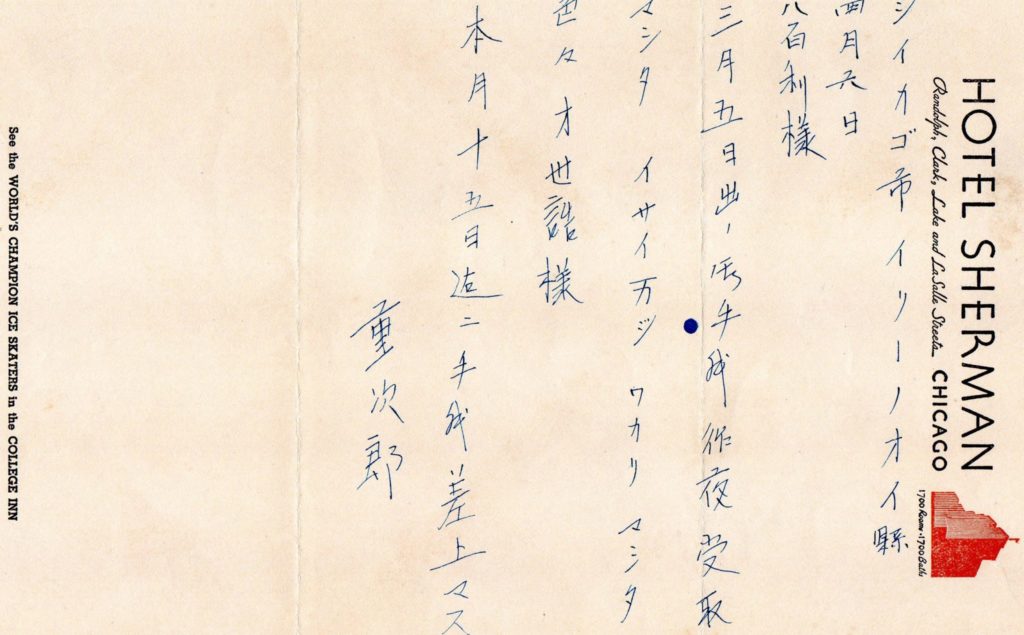 HOTEL SHERMAN
Randolph, Clark, Lake and LaSalle Streets CHICAGO
1700 Rooms · 1700 Baths
シイカゴ市 イリーノオイ縣
四月六日
八百利様
三月五日出ノ手紙昨夜受取
マシタ イサイ万ジ ワカリ マシタ
色々オ世話様
本月十五日迄ニ手紙差上マス
重次郎
See the WORLD'S CHAMPION ICE SKATERS in the COLLEGE INN